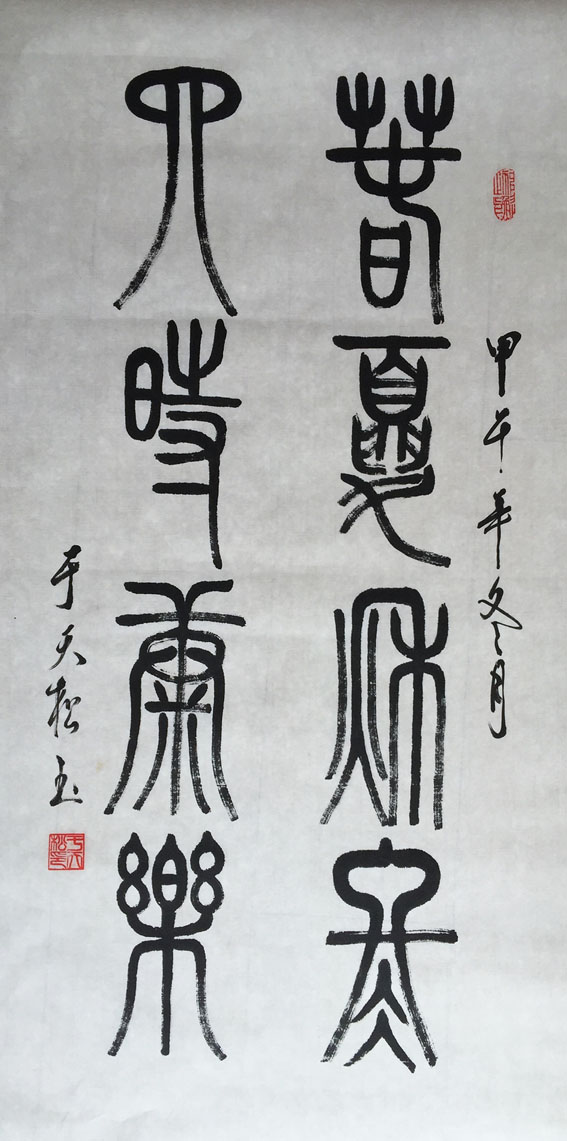 甲午年冬月
春夏秋冬
四時康樂
于天松
于天松印